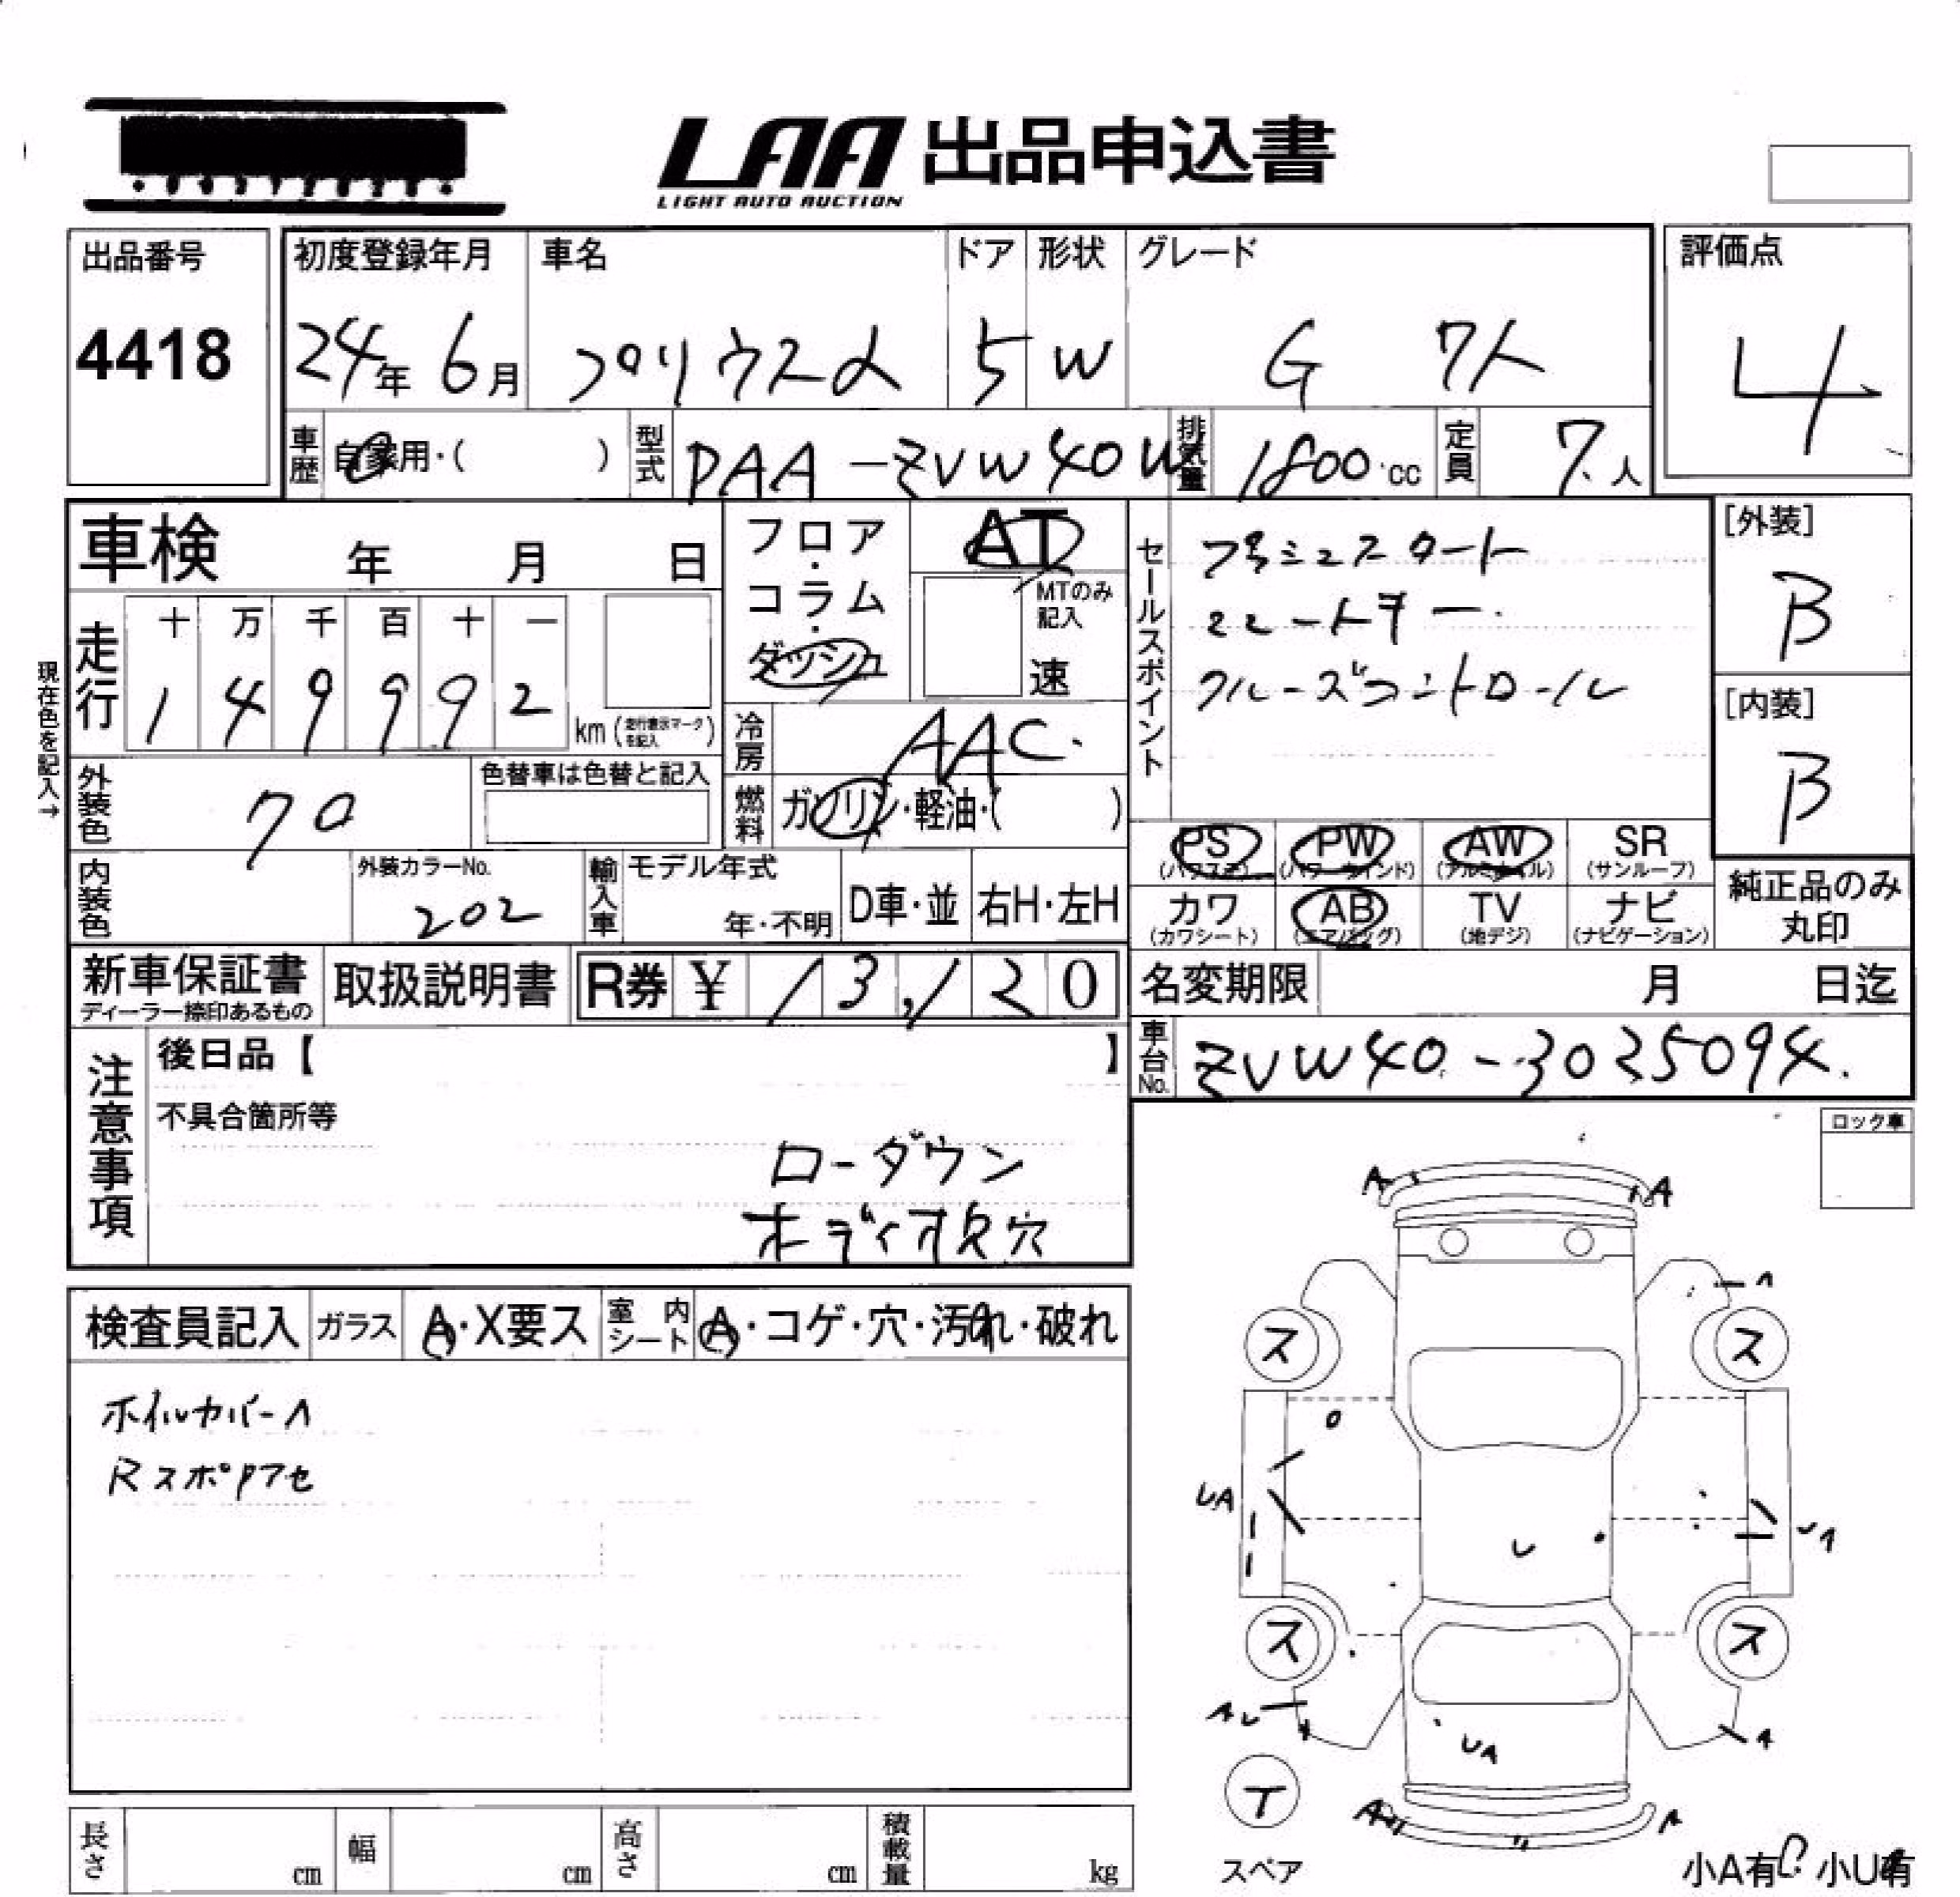 LAA 出品申込書
LIGHT AUTO AUCTION
出品番号
4418
初度登録年月
24年 6月
車名
プリウスα
ドア
5
形状
W
グレード
G 7人
評価点
4
車歴
自家用・( )
型式
DAA-ZVW40W
排気量
1800 cc
定員
7人
車検 年 月 日
走行
十 万 千 百 十 一
1 4 9 9 9 2
km (走行表示マークを記入)
現在色を記入→
フロア・コラム・ダッシュ
AT
MTのみ記入
速
冷房
AAC
燃料
ガソリン・軽油・( )
セールスポイント
プッシュスタート
スマートキー
クルーズコントロール
[外装]
B
[内装]
B
外装色
クロ
色替車は色替と記入
内装色
外装カラーNo.
202
輸入車
モデル年式
年・不明
D車・並
右H・左H
PS (パワステ)
PW (パワーウインド)
AW (アルミホイル)
SR (サンルーフ)
カワ (カワシート)
AB (エアバッグ)
TV (地デジ)
ナビ (ナビゲーション)
純正品のみ丸印
新車保証書
ディーラー捺印あるもの
取扱説明書
R券 ¥ 13,120
名変期限 月 日迄
車台No.
ZVW40-3035094
注意事項
後日品【 】
不具合箇所等
ローダウン
ボディオス穴
ロック車
検査員記入
ガラス
A・X要ス
室内シート
A・コゲ・穴・汚れ・破れ
ホイルカバーA
RスポPアセ
A
A
A
ス
ス
UA
U
UA
ス
ス
AU
UA
A
T
スペア
A
A
小A有 小U有
長さ cm
幅 cm
高さ cm
積載量 kg